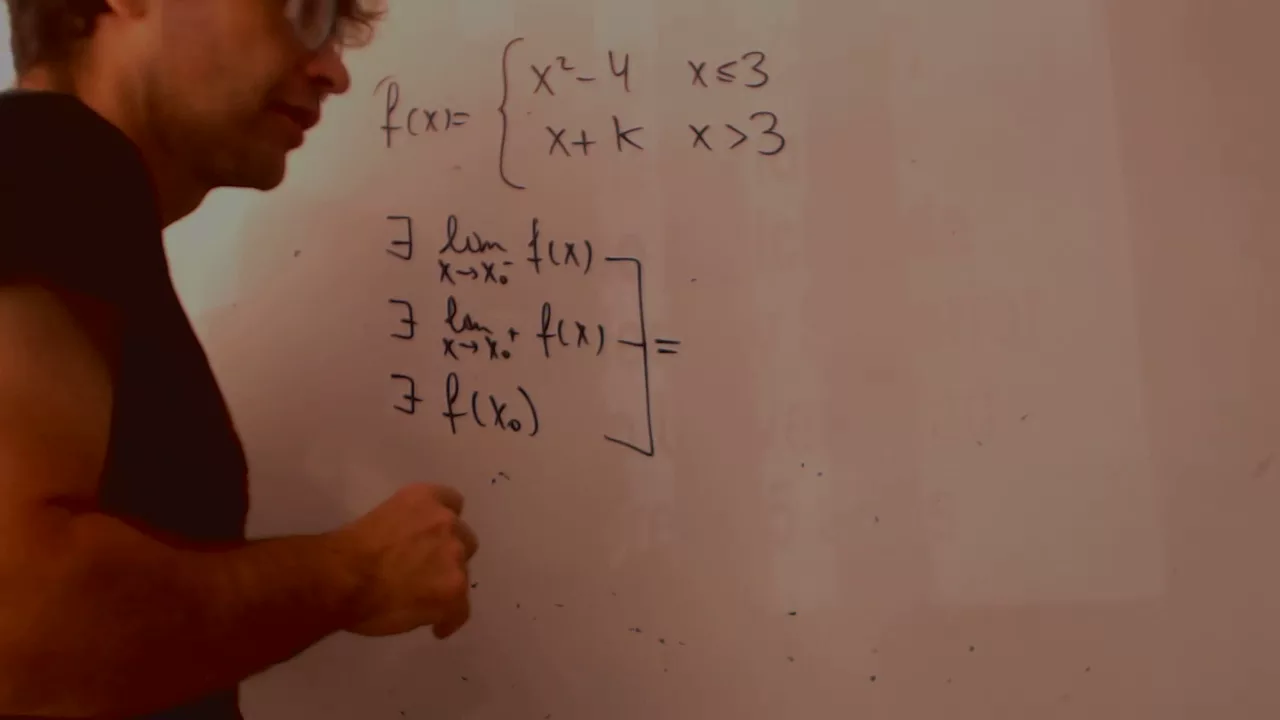 f(x)= { x²-4 x≤3
x+k x>3
∃ lim x→x₀⁻ f(x)
∃ lim x→x₀⁺ f(x) =
∃ f(x₀)